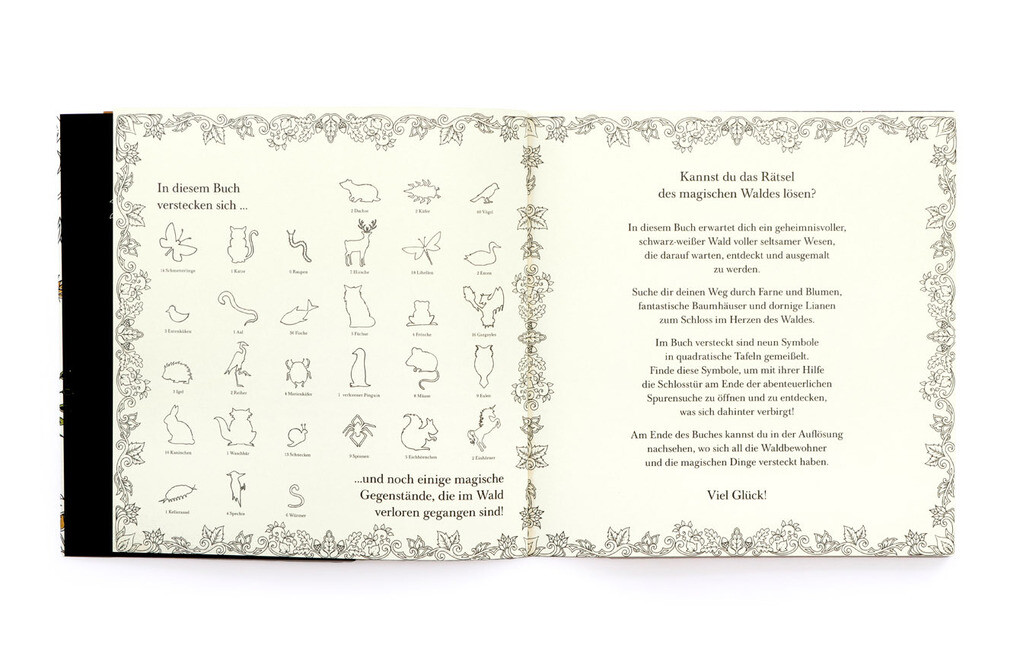 In diesem Buch
verstecken sich ...
2 Dachse
3 Käfer
10 Vögel
14 Schmetterlinge
1 Katze
6 Raupen
7 Hirsche
14 Libellen
3 Enten
3 Entenküken
1 Aal
3 Füchse
4 Frösche
1 Igel
2 Reiher
1 verlorener Pinguin
8 Mäuse
9 Eulen
1 Waschbär
9 Spinnen
3 Eichhörnchen
2 Einhörner
4 Spechte
5 Würmer
...und noch einige magische
Gegenstände, die im Wald
verloren gegangen sind!
Kannst du das Rätsel
des magischen Waldes lösen?
In diesem Buch erwartet dich ein geheimnisvoller,
schwarz-weißer Wald voller seltsamer Wesen,
die darauf warten, entdeckt und ausgemalt
zu werden.
Suche dir deinen Weg durch Farne und Blumen,
fantastische Baumhäuser und dornige Lianen
zum Schloss im Herzen des Waldes.
Im Buch versteckt sind neun Symbole
in quadratische Tafeln gemeißelt.
Finde diese Symbole, um mit ihrer Hilfe
die Schlosstür am Ende der abenteuerlichen
Spurensuche zu öffnen und zu entdecken,
was sich dahinter verbirgt!
Am Ende des Buches kannst du in der Auflösung
nachsehen, wo sich all die Waldbewohner
und die magischen Dinge versteckt haben.
Viel Glück!